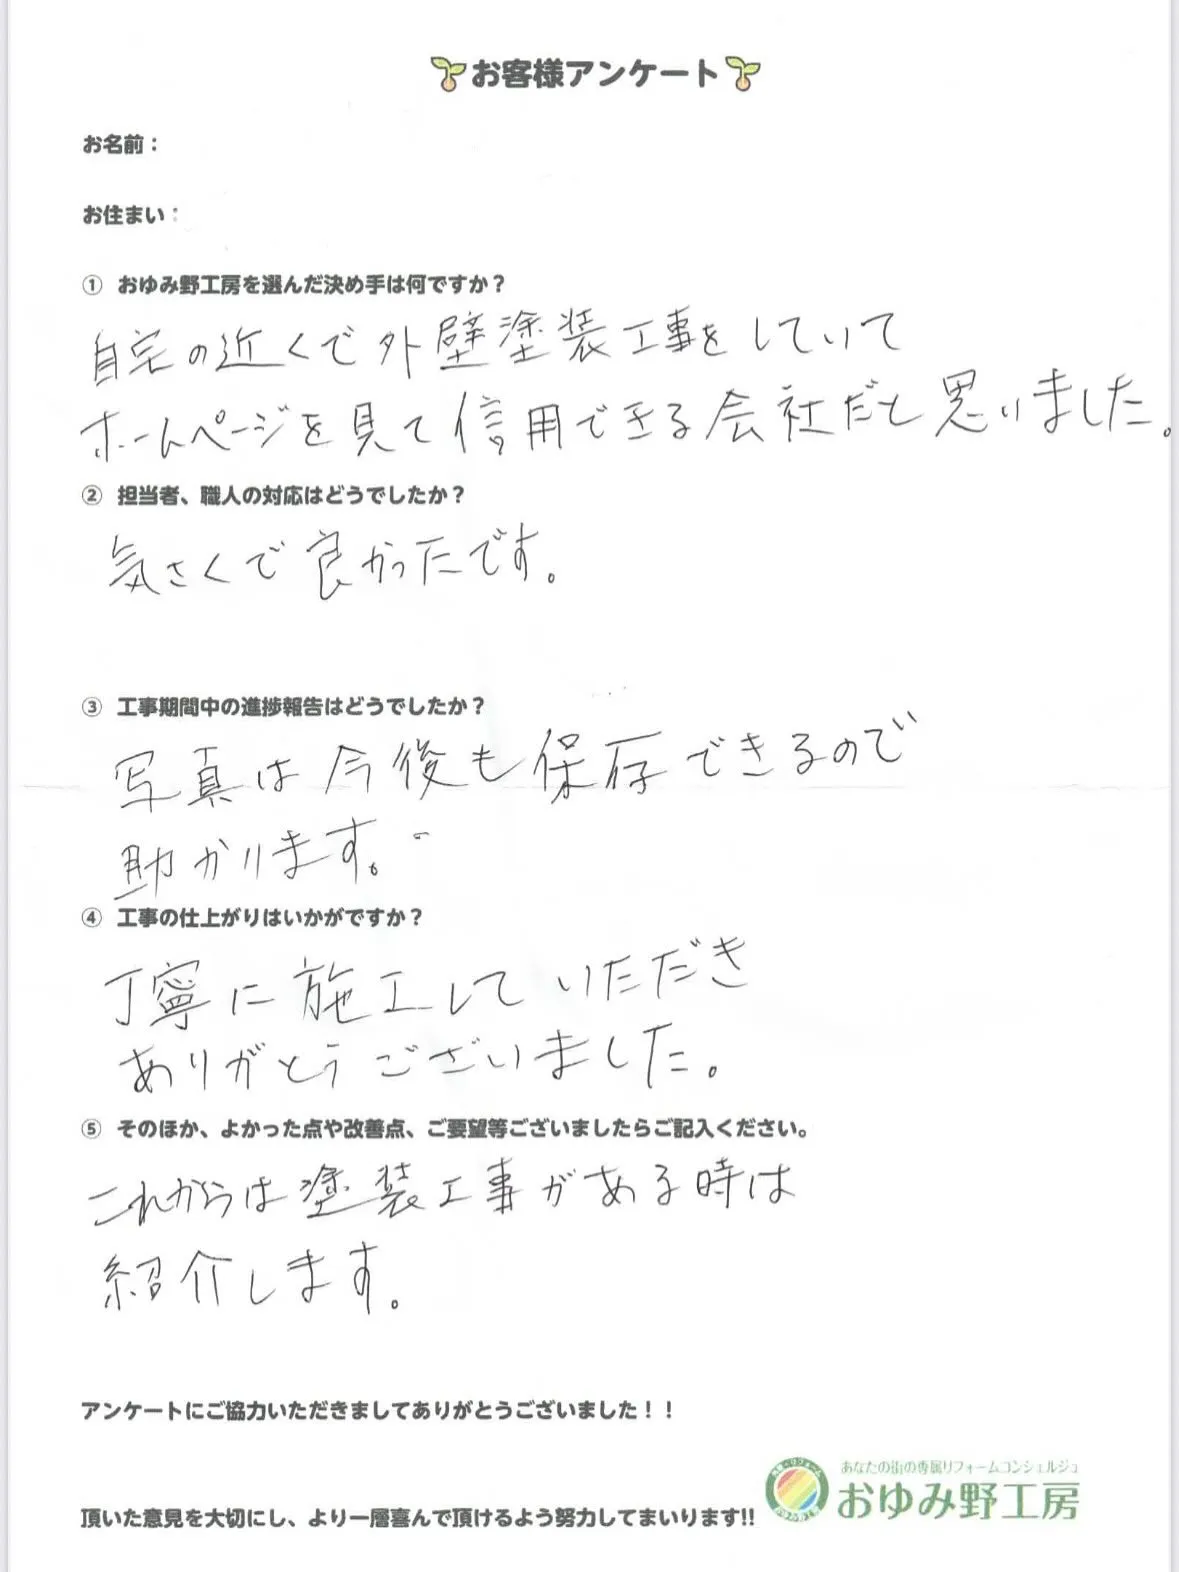 お客様アンケート
お名前：
お住まい：
① おゆみ野工房を選んだ決め手は何ですか？
自宅の近くで外壁塗装工事をしていて
ホームページを見て信用できる会社だと思いました。
② 担当者、職人の対応はどうでしたか？
気さくで良かったです。
③ 工事期間中の進捗報告はどうでしたか？
写真は今後も保存できるので
助かります。
④ 工事の仕上がりはいかがですか？
丁寧に施工していただき
ありがとうございました。
⑤ そのほか、よかった点や改善点、ご要望等ございましたらご記入ください。
これからは塗装工事がある時は
紹介します。
アンケートにご協力いただきましてありがとうございました！！
あなたの街の専属リフォームコンシェルジュ
おゆみ野工房
頂いた意見を大切にし、より一層喜んで頂けるよう努力してまいります!!